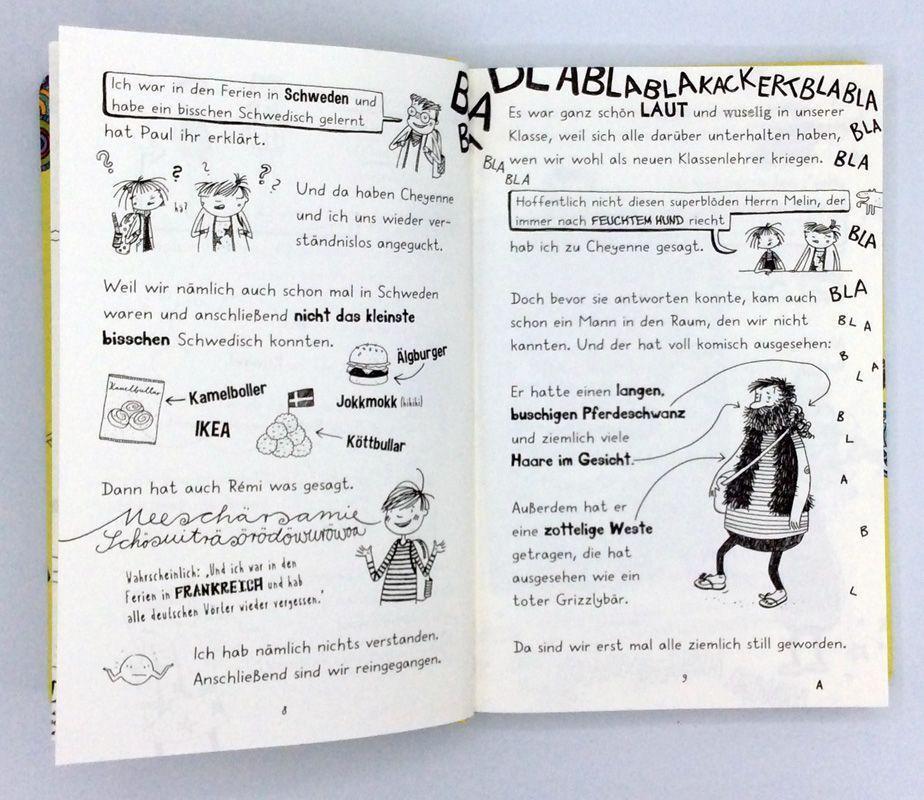 Ich war in den Ferien in Schweden und
habe ein bisschen Schwedisch gelernt
hat Paul ihr erklärt.
? ? hä? ? ? ? ?
Und da haben Cheyenne
und ich uns wieder ver-
ständnislos angeguckt.
Weil wir nämlich auch schon mal in Schweden
waren und anschließend nicht das kleinste
bisschen Schwedisch konnten.
Älgburger
Kamelbullar
Kamelboller
Jokkmokk (hihihi)
IKEA
Köttbullar
Dann hat auch Rémi was gesagt.
Meeschärsamie
Schösuiträsörödöwuröwoa
Wahrscheinlich: „Und ich war in den
Ferien in FRANKREICH und hab
alle deutschen Wörter wieder vergessen.“
Ich hab nämlich nichts verstanden.
Anschließend sind wir reingegangen.
8
BLA
BLABLABLABLAKACKERTBLABLA
Es war ganz schön LAUT und wuselig in unserer
Klasse, weil sich alle darüber unterhalten haben,
BLA
wen wir wohl als neuen Klassenlehrer kriegen.
BLA
BLA
BLA
Hoffentlich nicht diesen superblöden Herrn Melin, der
immer nach FEUCHTEM HUND riecht
hab ich zu Cheyenne gesagt.
BLA
Doch bevor sie antworten konnte, kam auch
BLA
schon ein Mann in den Raum, den wir nicht
BLA
kannten. Und der hat voll komisch ausgesehen:
B
L
A
Er hatte einen langen,
buschigen Pferdeschwanz
B
und ziemlich viele
L
Haare im Gesicht.
A
Außerdem hat er
eine zottelige Weste
B
getragen, die hat
ausgesehen wie ein
L
toter Grizzlybär.
Da sind wir erst mal alle ziemlich still geworden.
9
A